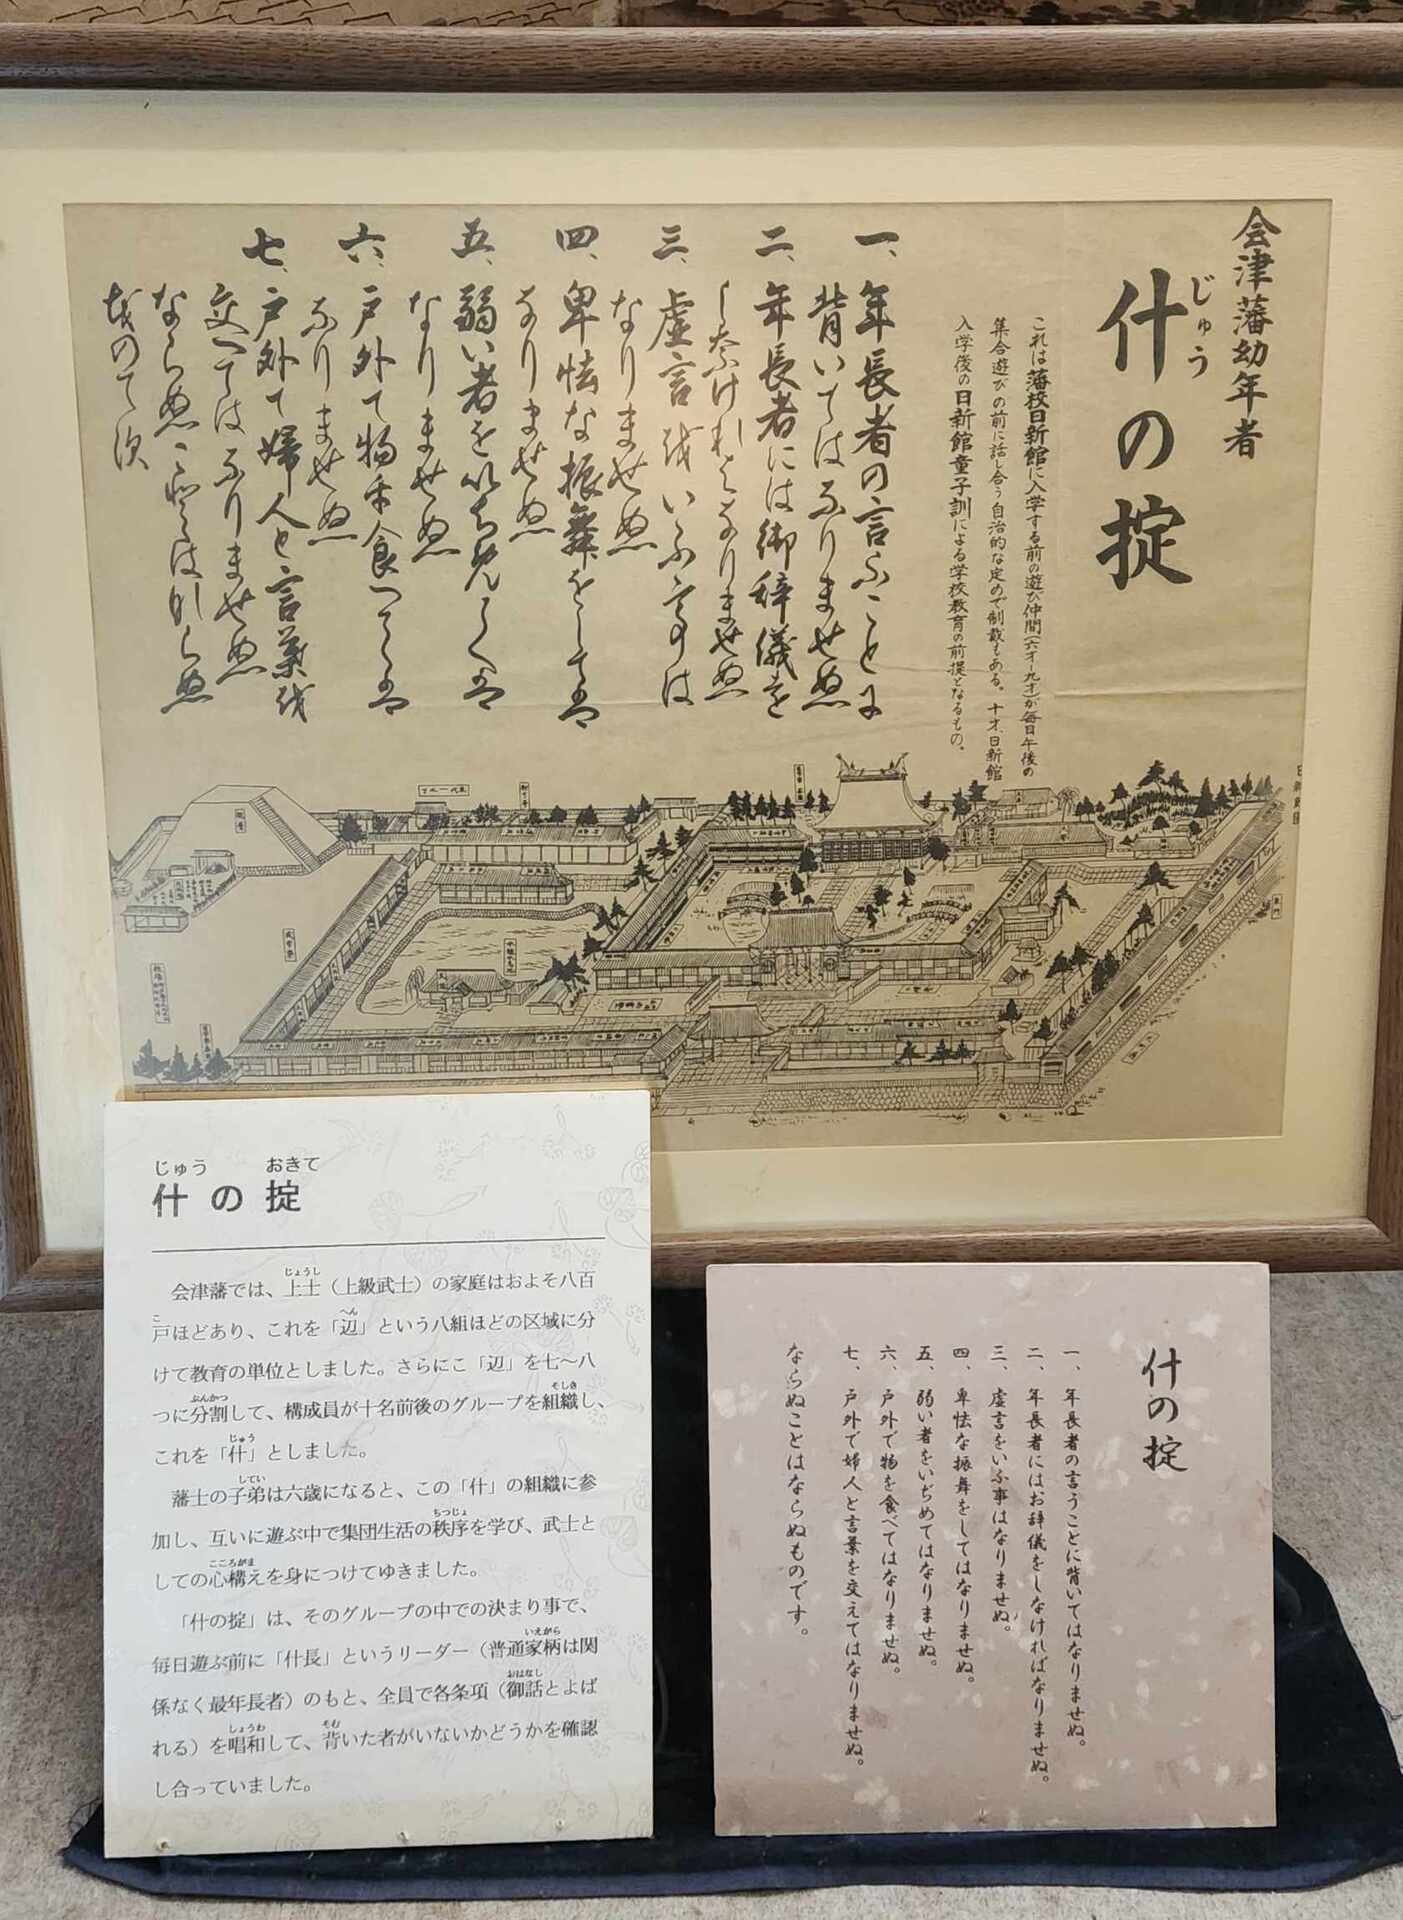 会津藩幼年者
じゅう
什の掟
これは藩校日新館に入学する前の遊び仲間(六才〜九才)が毎日午後の
集合遊びの前に話し合う自治的な定めで制裁もある。十才、日新館
入学後の日新館童子訓による学校教育の前提となるもの。
一、年長者の言ふことに
背いてはなりませぬ
二、年長者には御辞儀を
しなければなりませぬ
三、虚言をいふ事は
なりませぬ
四、卑怯な振舞をしては
なりませぬ
五、弱い者をいぢめては
なりませぬ
六、戸外で物を食べては
なりませぬ
七、戸外で婦人と言葉を
交へてはなりませぬ
ならぬことはならぬ
ものです
じゅう おきて
什の掟
じょうし
会津藩では、上士（上級武士）の家庭はおよそ八百
こ へん
戸ほどあり、これを「辺」という八組ほどの区域に分
けて教育の単位としました。さらにこ「辺」を七〜八
ぶんかつ そしき
つに分割して、構成員が十名前後のグループを組織し、
じゅう
これを「什」としました。
してい
藩士の子弟は六歳になると、この「什」の組織に参
ちつじょ
加し、互いに遊ぶ中で集団生活の秩序を学び、武士と
こころがま
しての心構えを身につけてゆきました。
「什の掟」は、そのグループの中での決まり事で、
いえがら
毎日遊ぶ前に「什長」というリーダー（普通家柄は関
おはなし
係なく最年長者）のもと、全員で各条項（御話とよば
しょうわ そむ
れる）を唱和して、背いた者がいないかどうかを確認
し合っていました。
什の掟
一、年長者の言うことに背いてはなりませぬ。
二、年長者にはお辞儀をしなければなりませぬ。
三、虚言をいふ事はなりませぬ。
四、卑怯な振舞をしてはなりませぬ。
五、弱い者をいぢめてはなりませぬ。
六、戸外で物を食べてはなりませぬ。
七、戸外で婦人と言葉を交えてはなりませぬ。
ならぬことはならぬものです。